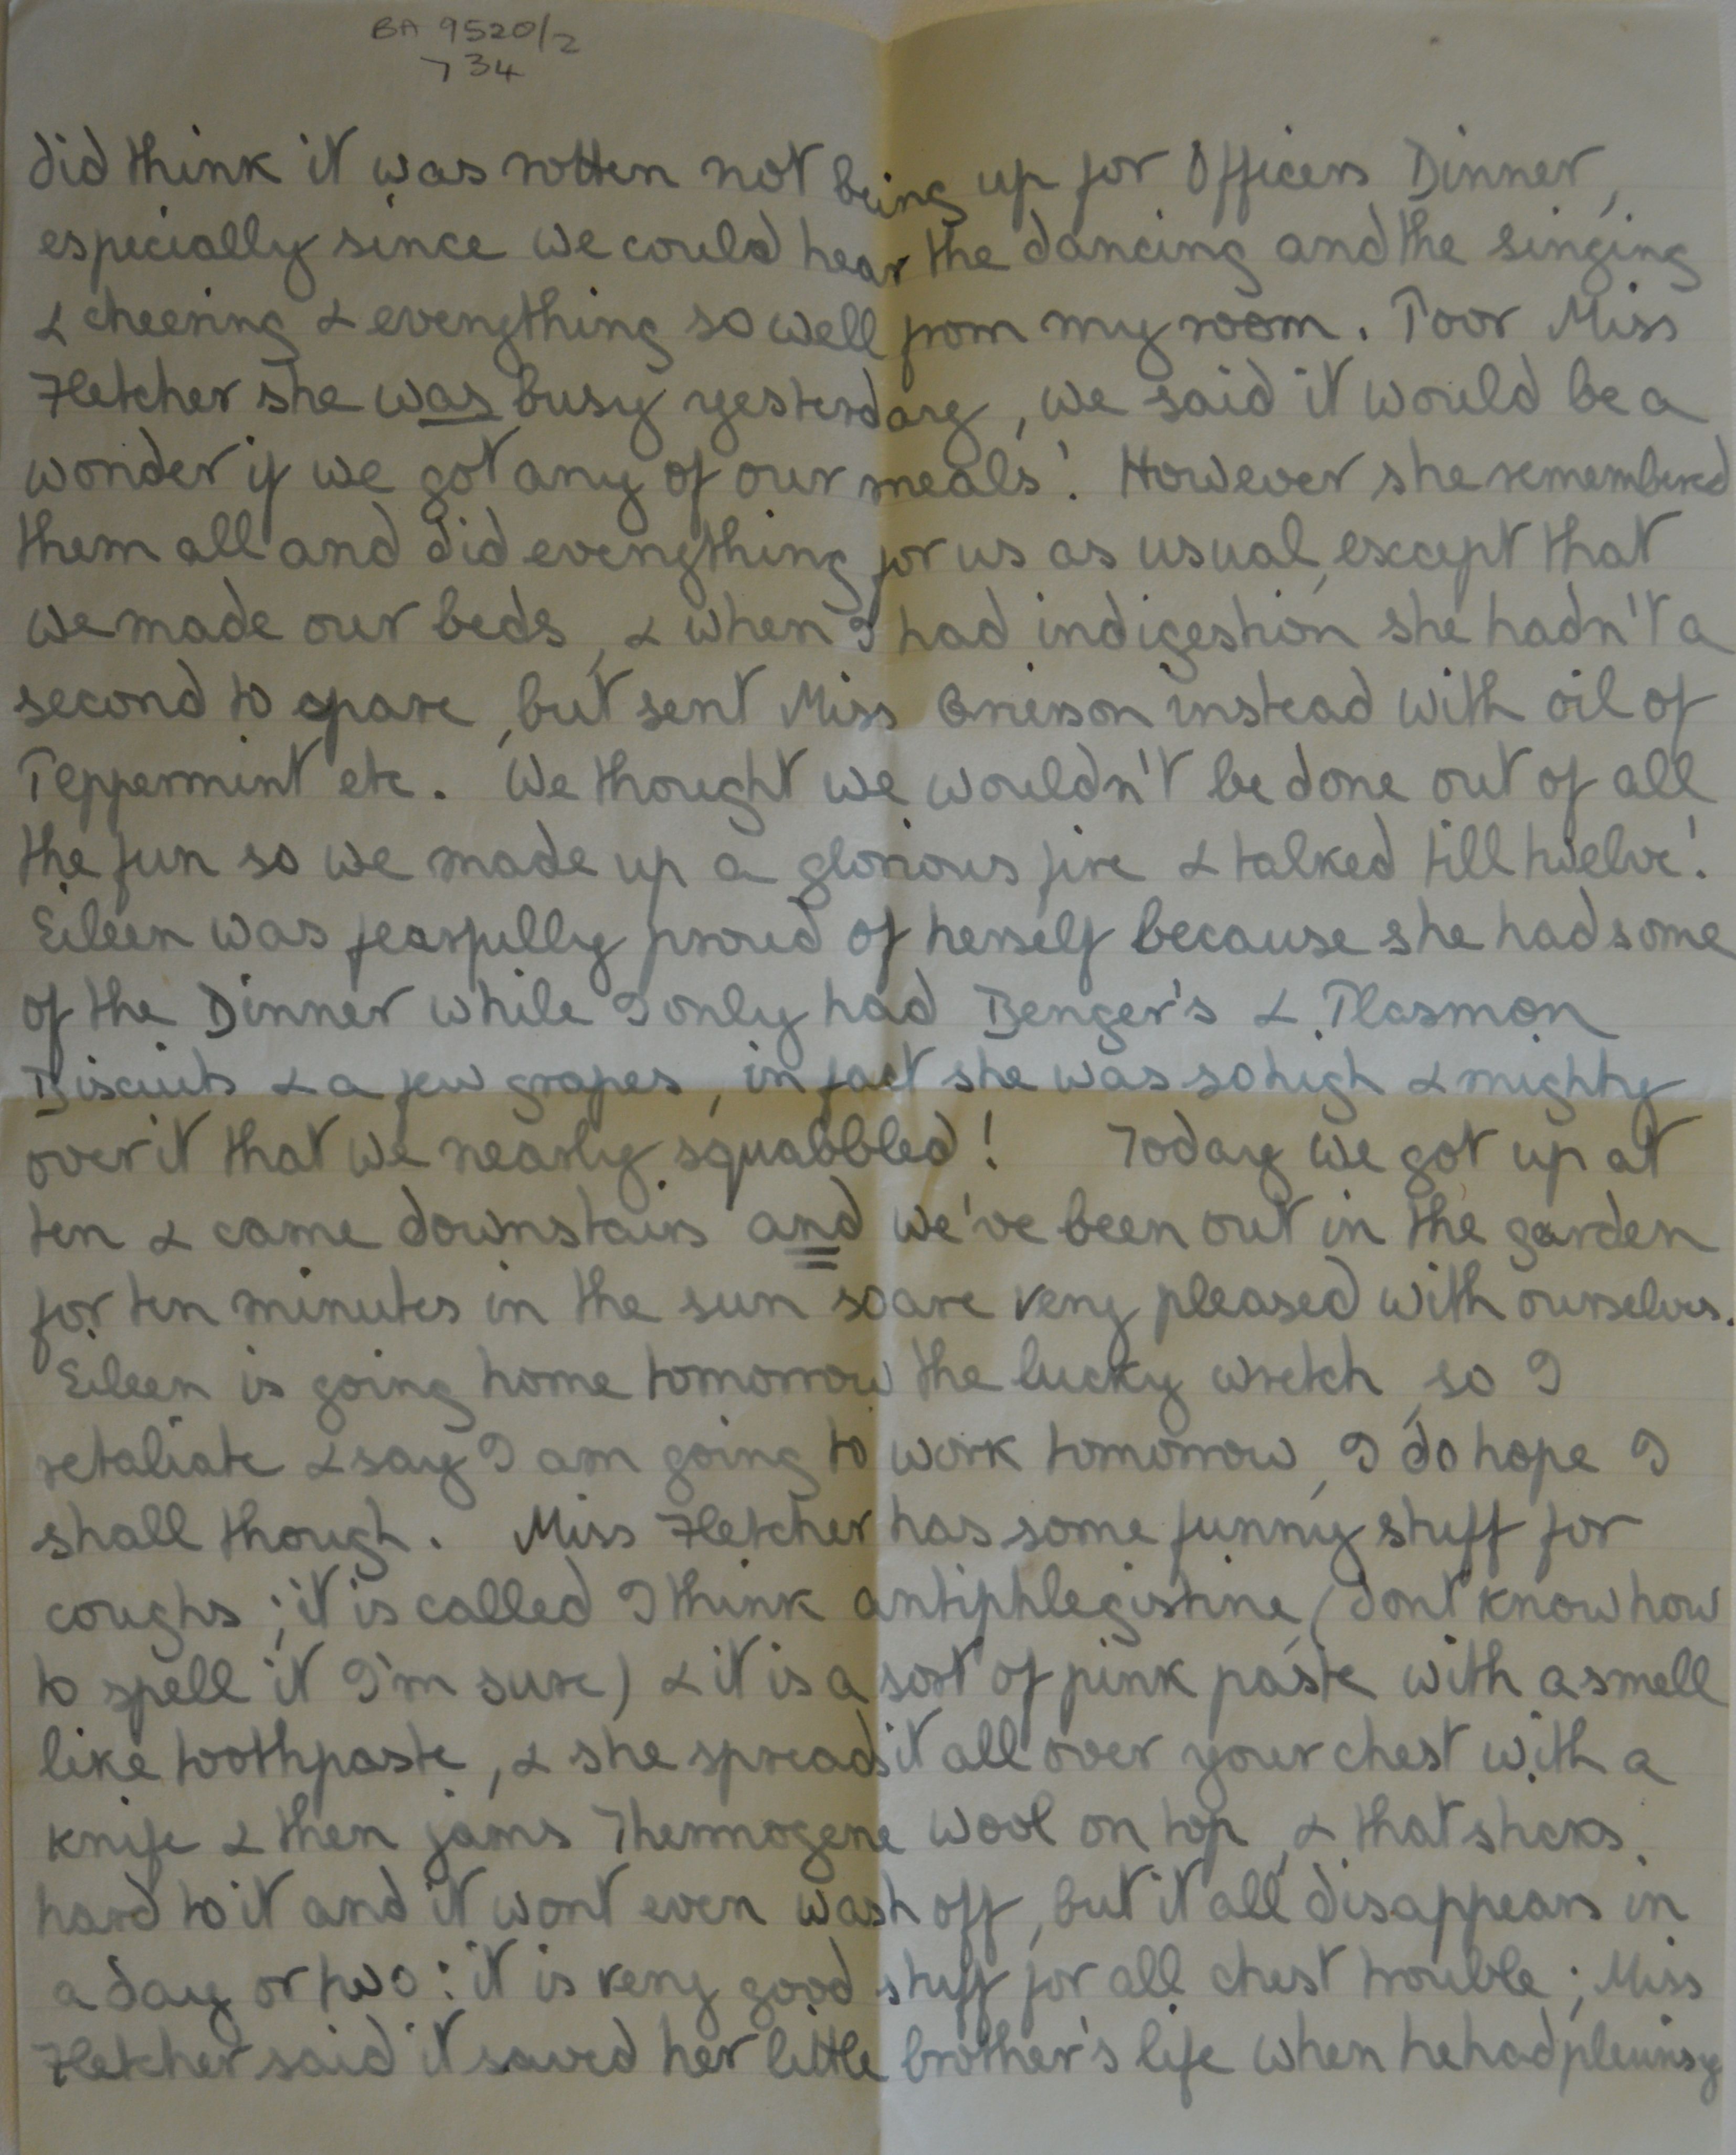 BA 9520/2
734
did think it was rotten not being up for Officers Dinner,
especially since we could hear the dancing and the singing
& cheering & everything so well from my room. Poor Miss
Fletcher she was busy yesterday, we said it would be a
wonder if we got any of our meals! However she remembered
them all and did everything for us as usual, except that
we made our beds, & when I had indigestion she hadn't a
second to spare, but sent Miss Grierson instead with oil of
Peppermint etc. We thought we wouldn't be done out of all
the fun so we made up a glorious fire & talked till twelve!
Eileen was fearfully proud of herself because she had some
of the Dinner while I only had Benger's & Plasmon
Biscuits & a few grapes, in fact she was so high & mighty
over it that we nearly squabbled! Today we got up at
ten & came downstairs and we've been out in the garden
for ten minutes in the sun so are very pleased with ourselves.
Eileen is going home tomorrow the lucky wretch, so I
retaliate & say I am going to work tomorrow, I do hope I
shall though. Miss Fletcher has some funny stuff for
coughs; it is called I think antiphlegistine, (don't know how
to spell it I'm sure) & it is a sort of pink paste with a smell
like toothpaste, & she spreads it all over your chest with a
knife & then jams Thermogene wool on top, & that sticks
hard to it and it wont even wash off, but it all disappears in
a day or two: it is very good stuff for all chest trouble; Miss
Fletcher said it saved her little brother's life when he had pleurisy